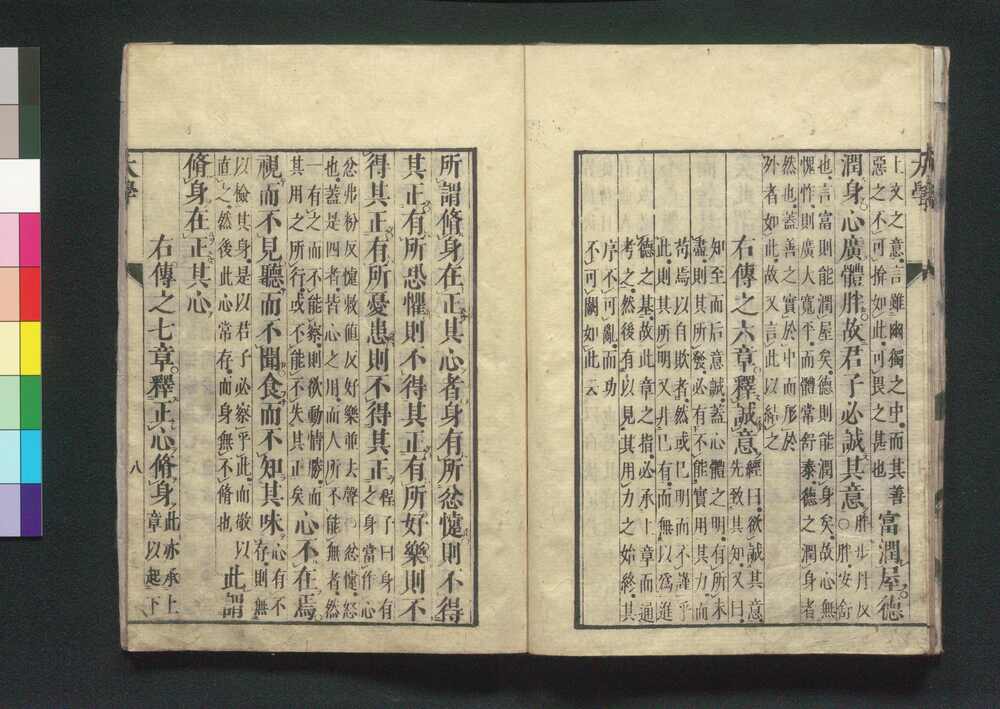 大學
上文之意言雖幽獨之中而其善
惡之不可揜如此可畏之甚也 富潤屋德
潤身心廣體胖故君子必誠其意 胖步丹反
○胖安舒
也言富則能潤屋矣德則能潤身矣故心無
愧怍則廣大寬平而體常舒泰德之潤身者
然也蓋善之實於中而形於
外者如此故又言此以結之
右傳之六章釋誠意 經曰欲誠其意
先致其知又曰
知至而后意誠蓋心體之明有所未
盡則其所發必有不能實用其力而
苟焉以自欺者然或已明而不謹乎
此則其所明又非己有而無以爲進
德之基故此章之指必承上章而通
考之然後有以見其用力之始終其
序不可亂而功
不可闕如此云
所謂脩身在正其心者身有所忿懥則不得
其正有所恐懼則不得其正有所好樂則不
得其正有所憂患則不得其正 程子曰身有
之身當作心
忿弗粉反懥敕值反好樂並去聲○忿懥怒
也蓋是四者皆心之用而人所不能無者然
一有之而不能察則欲動情勝而
其用之所行或不能不失其正矣 心不在焉
視而不見聽而不聞食而不知其味 心有不
存則無
以檢其身是以君子必察乎此而敬以
直之然後此心常存而身無不脩也 此謂
脩身在正其心
右傳之七章釋正心脩身 此亦承上
章以起下
大學
八